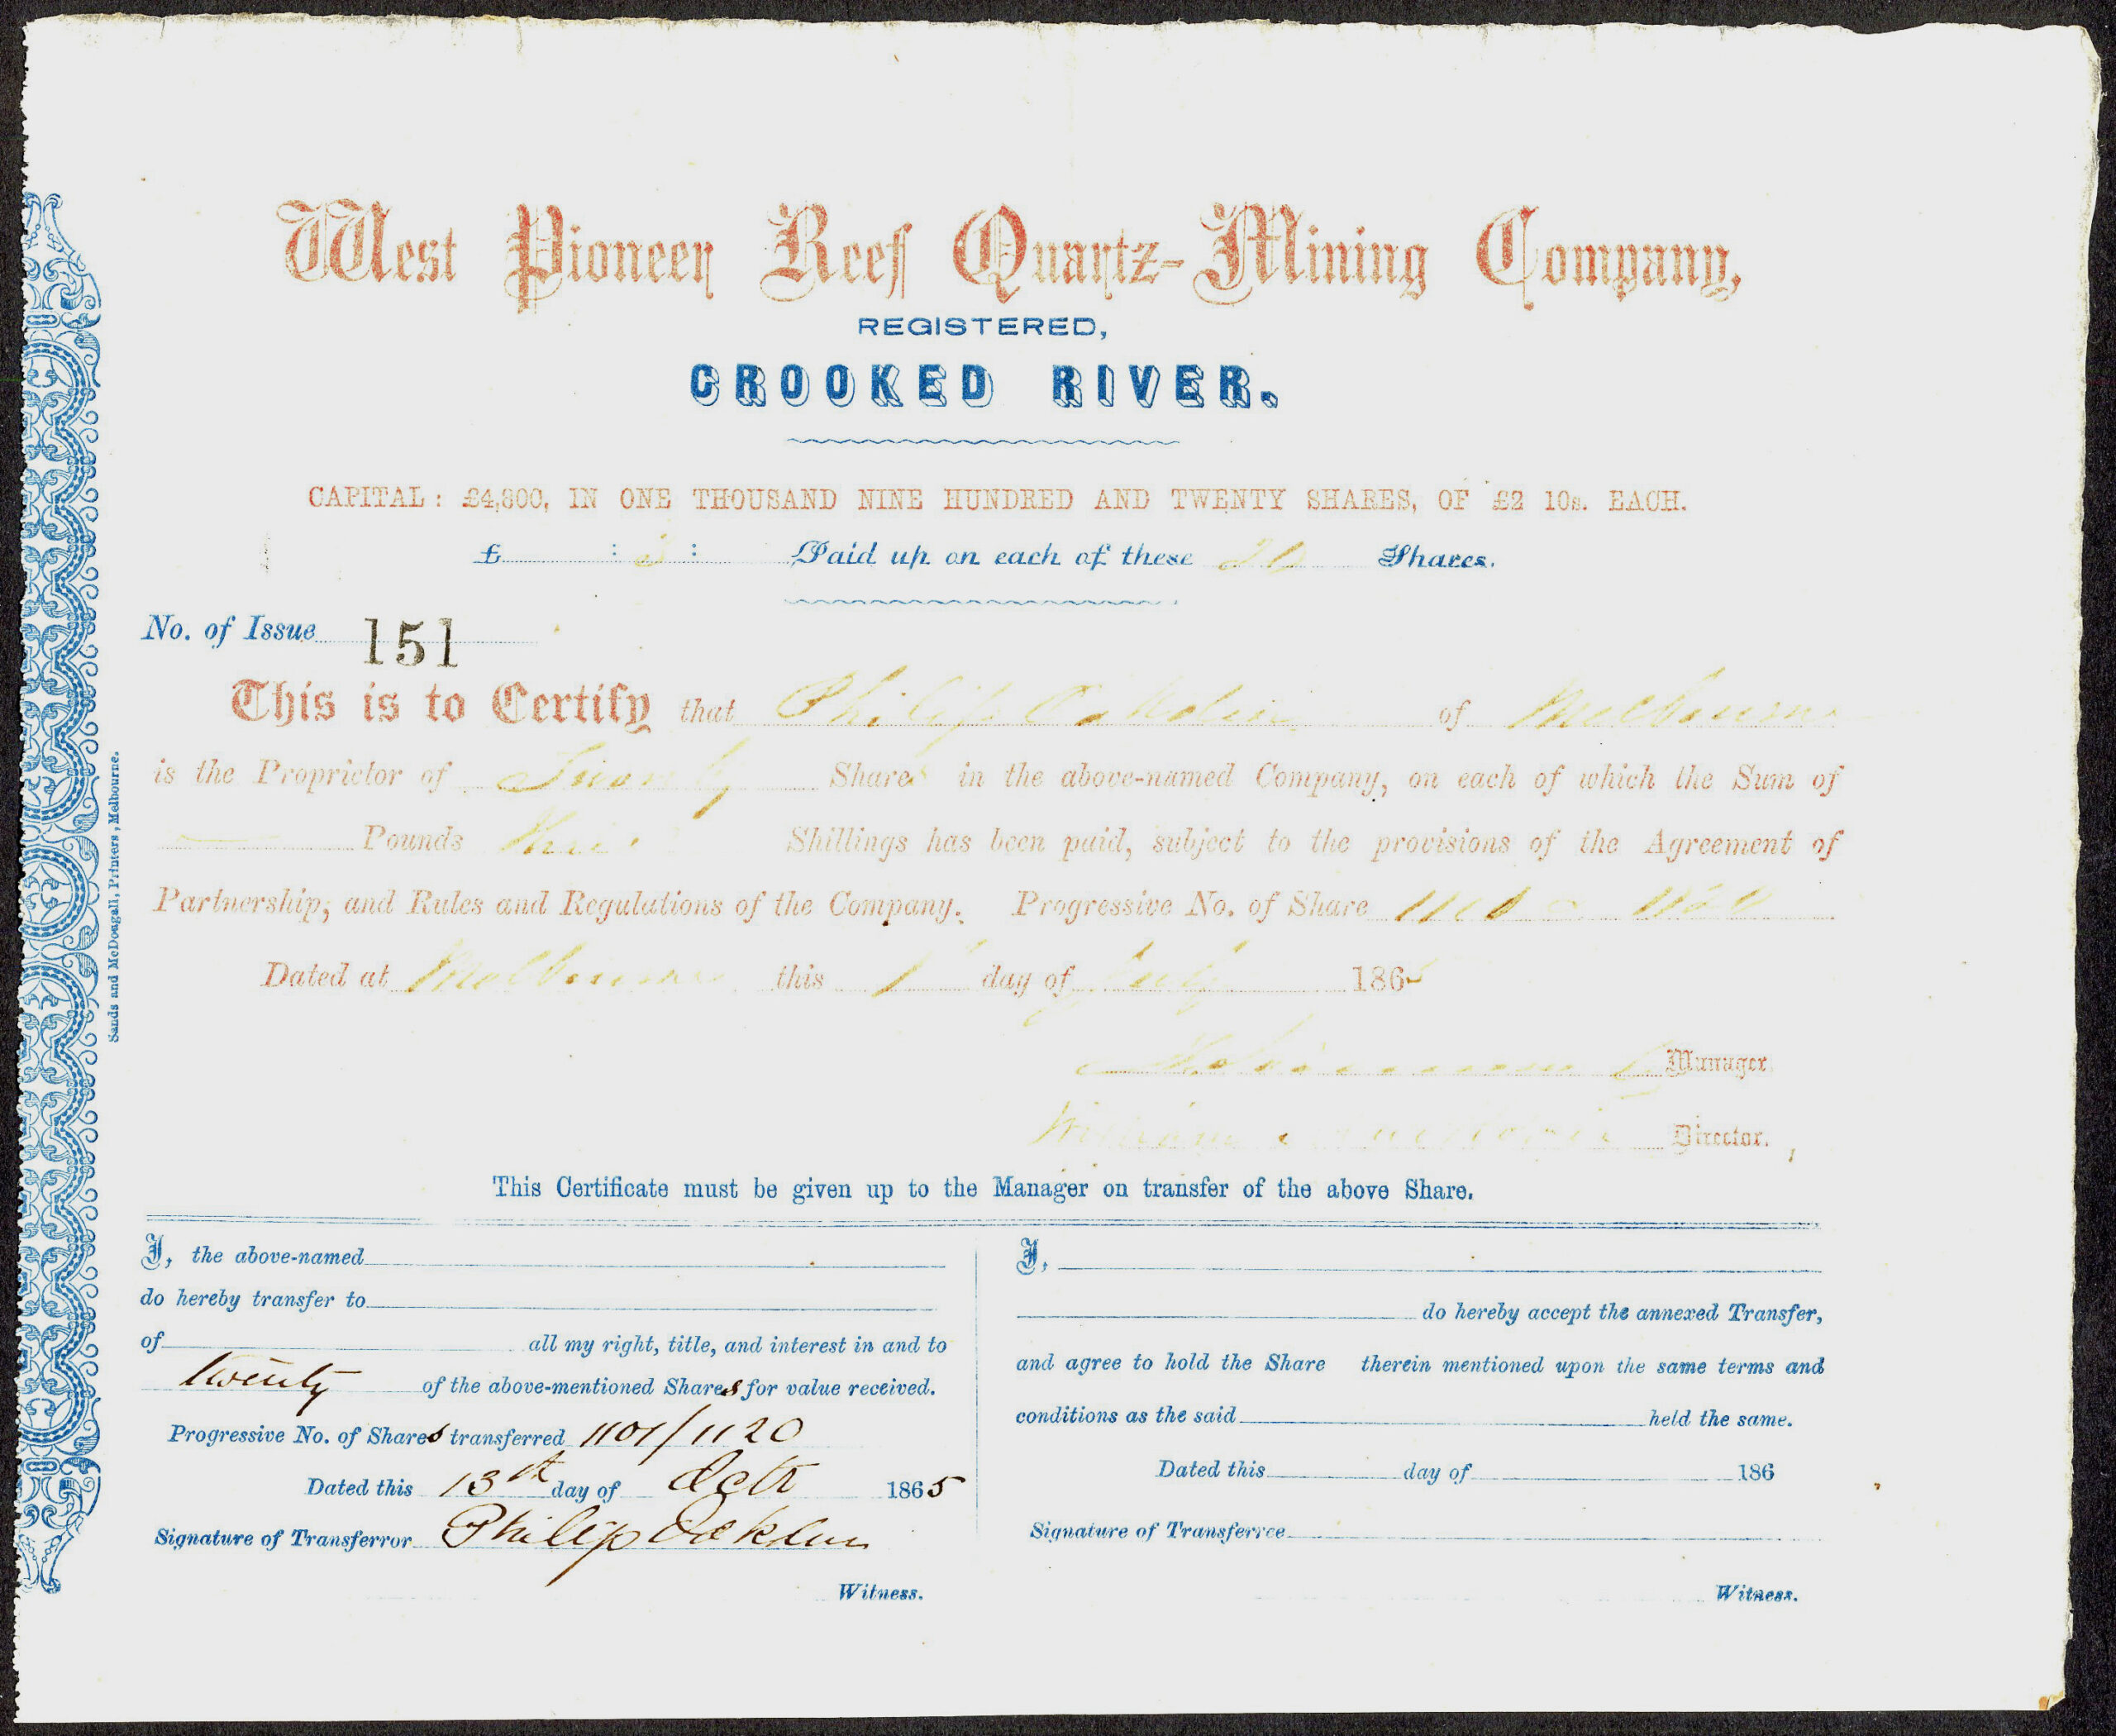 West Pioneer Reef Quartz-Mining Company,
REGISTERED,
CROOKED RIVER.
CAPITAL: £4,800, IN ONE THOUSAND NINE HUNDRED AND TWENTY SHARES, OF £2 10s. EACH.
£ : 3 : Paid up on each of these 20 Shares.
No. of Issue 151
This is to Certify that Philip Oakden of Melbourne
is the Proprietor of Twenty Shares in the above-named Company, on each of which the Sum of
Pounds Three Shillings has been paid, subject to the provisions of the Agreement of
Partnership, and Rules and Regulations of the Company. Progressive No. of Share 1101 1120
Dated at Melbourne this 1 day of July 1865
Manager
William Director.
This Certificate must be given up to the Manager on transfer of the above Share.
I, the above-named
do hereby transfer to
of all my right, title, and interest in and to
twenty of the above-mentioned Shares for value received.
Progressive No. of Shares transferred 1101/1120
Dated this 13th day of Octr 1865
Signature of Transferror Philip Oakden
Witness.
I,
do hereby accept the annexed Transfer,
and agree to hold the Share therein mentioned upon the same terms and
conditions as the said held the same.
Dated this day of 186
Signature of Transferree
Witness.
Sands and McDougall, Printers, Melbourne.